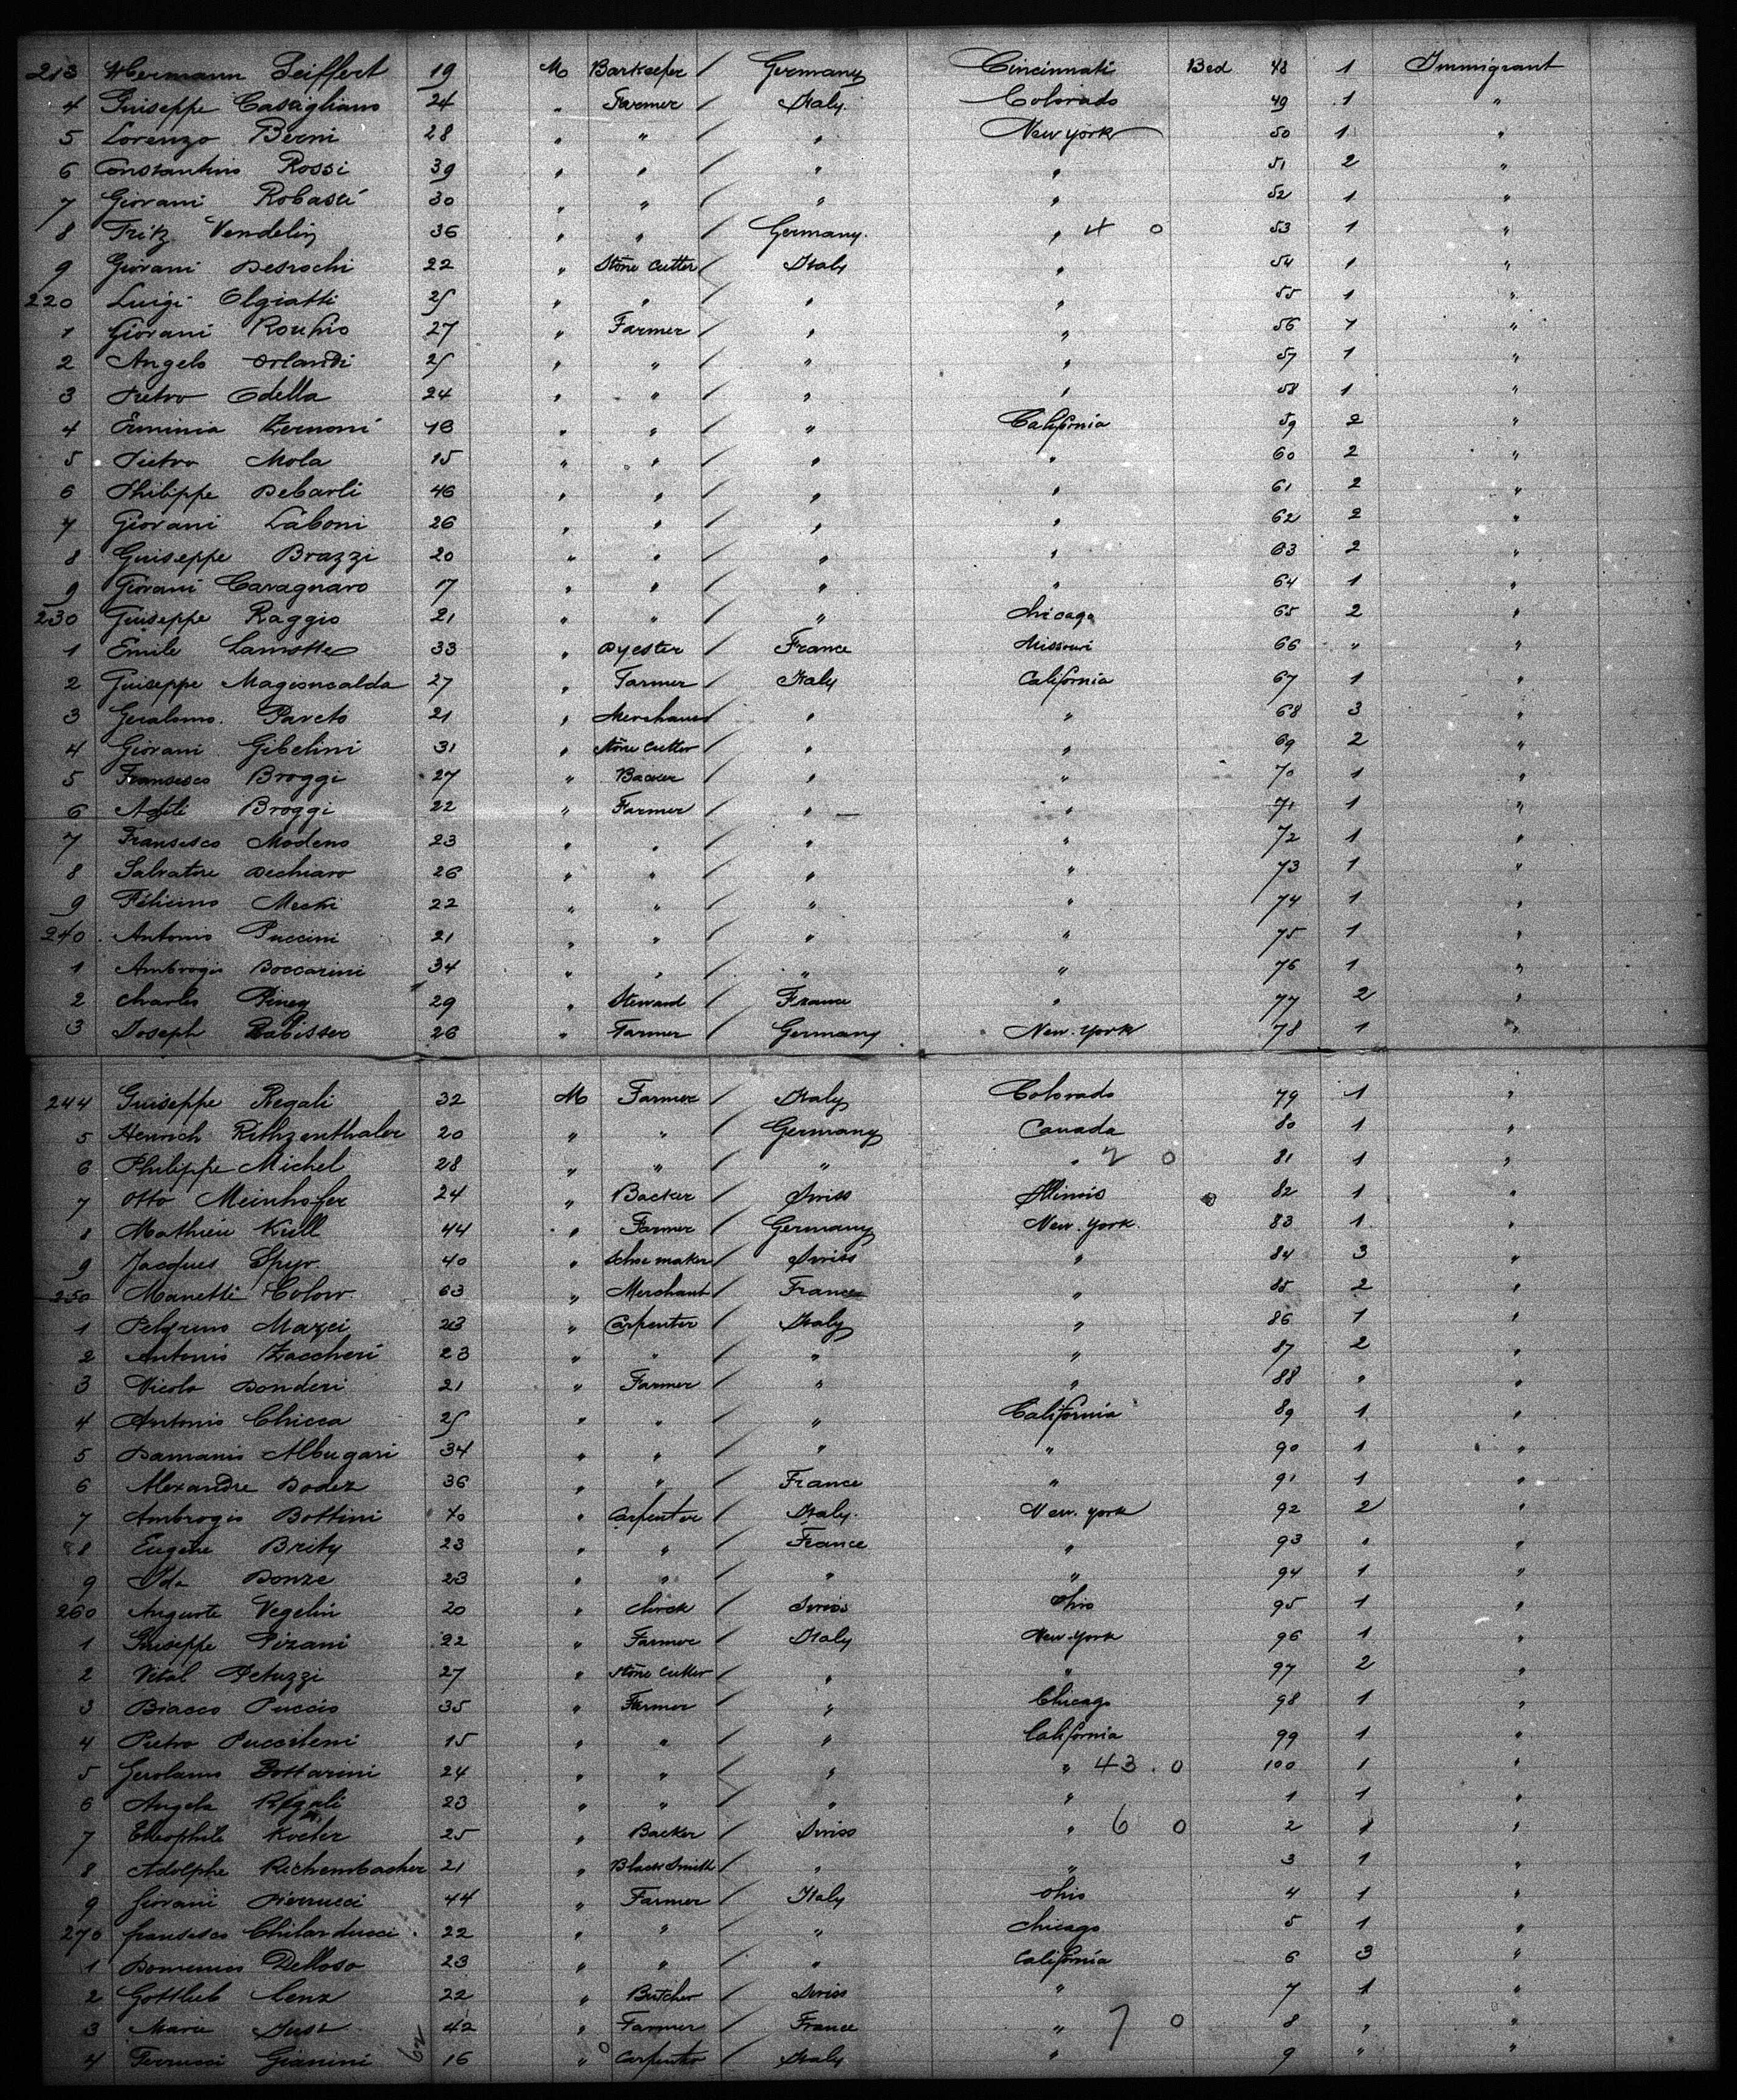 213 Hermann Seiffert 19 M Barkeeper / Germany Cincinnati Bed 48 1 Immigrant
4 Guiseppe Casagliano 24 " Farmer / Italy. Colorado 49 1 "
5 Lorenzo Berni 28 " " / " New York 50 1 "
6 Constantino Rossi 39 " " / " " 51 2 "
7 Giovani Robasti 30 " " / " " 52 1 "
8 Fritz Vendelin 36 " " / Germany. " 4 0 53 1 "
9 Giovani Desrochi 22 " Stone Cutter / Italy " 54 1 "
220 Luigi Olgiatti 25 " " / " " 55 1 "
1 Giovani 27 " Farmer / " " 56 1 "
2 Angelo Orlandi 25 " " / " " 57 1 "
3 Pietro Odella 24 " " / " " 58 1 "
4 Erminia Zernoni 18 " " / " California 59 2 "
5 Pietro Mola 15 " " / " " 60 2 "
6 Philippe Debarli 46 " " / " " 61 2 "
7 Giovani Laboni 26 " " / " " 62 2 "
8 Guiseppe Brazzi 20 " " / " " 63 2 "
9 Giovani Cavagnaro 17 " " / " " 64 1 "
230 Guiseppe Raggio 21 " " / " Chicago 65 2 "
1 Emile Lamotte 33 " Dyester / France Missouri 66 " "
2 Guiseppe Magioncalda 27 " Farmer / Italy California 67 1 "
3 Geralomo. Pareto 21 " Merchant / " " 68 3 "
4 Giovani Gibelini 31 " Stone Cutter / " " 69 2 "
5 Fransesco Broggi 27 " Backer / " " 70 1 "
6 Broggi 22 " Farmer / " " 71 1 "
7 Fransesco Modeno 23 " " / " " 72 1 "
8 Salvatore Dechiaro 26 " " / " " 73 1 "
9 Felicino Mechi 22 " " / " " 74 1 "
240 Antonio Puccini 21 " " / " " 75 1 "
1 Ambrogio Boccarini 34 " " / " " 76 1 "
2 Charles Piney 29 " Steward / France " 77 2 "
3 Joseph 26 " Farmer / Germany New. York 78 1 "
244 Guiseppe Regali 32 M Farmer / Italy Colorado 79 1 "
5 Henrich Rithzenthaler 20 " " / Germany Canada 80 1 "
6 Philippe Michel 28 " " / " " 2 0 81 1 "
7 Otto Meinhofer 24 " Backer / Swiss Illinois 82 1 "
8 Mathieu Kull 44 " Farmer / Germany New. York. 83 1 "
9 Jacques Spyr 40 " Schoemaker / Swiss " 84 3 "
250 Manetti Colow 63 " Merchant / France " 85 2 "
1 Pelgrino Mazei 23 " Carpenter / Italy " 86 1 "
2 Antonio Zaccheri 23 " " / " " 87 2 "
3 Nicola Donderi 21 " Farmer / " " 88 " "
4 Antonio Chicca 25 " " / " California 89 1 "
5 Damanio Albugari 34 " " / " " 90 1 "
6 Alexandre Doder 36 " " / France " 91 1 "
7 Ambrogio Bottini 40 " Carpenter / Italy. New. York 92 2 "
8 Eugene Brity 23 " " / France " 93 " "
9 Ida Donze 23 " " / " " 94 1 "
260 Auguste Vegelin 20 " / Swiss Ohio 95 1 "
1 Guiseppe Pizani 22 " Farmer / Italy New York 96 1 "
2 Vital Petuzzi 27 " Stone Cutter / " " 97 2 "
3 Biacco Puccio 35 " Farmer / " Chicago 98 1 "
4 Pietro Puccileni 15 " " / " California 99 1 "
5 Gerolamo Bottarini 24 " " / " " 43.0 100 1 "
6 Angela Rigali 23 " " / " " 1 1 "
7 Theophile Kocher 25 " Backer / Swiss " 6 0 2 1 "
8 Adolphe Richembacher 21 " Black Smith / " " 3 1 "
9 Giovani Pierrucci 44 " Farmer / Italy Ohio 4 1 "
270 fransesco Chilarducci 22 " " / " Chicago 5 1 "
1 Domenico Delloso 23 " " / " California 6 3 "
2 Gottlieb Lenz 22 " Butcher / Swiss " 7 1 "
3 Marie Just 42 " Farmer / France " 7 0 8 " "
4 Ferrucci Gianini 16 " Carpenter / Italy " 9 " "